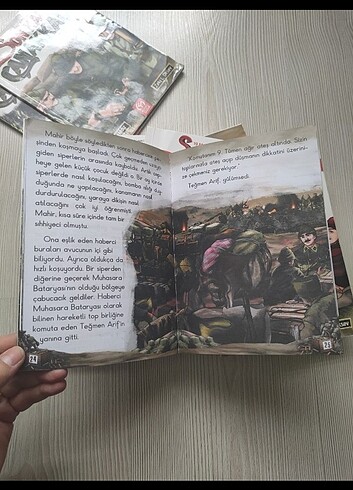 Mahir böyle söyledikten sonra habercinin pe-
şinden koşmaya başladı. Çok geçmeden ikisi
giden siperlerin arasında kayboldu. Artık
heye gelen küçük çocuk değildi o. Bir ay içinde
siperlerde nasıl koşulacağını, bomba
duğunda ne yapılacağını, kanamanın nasıl
durdurulacağını, yaraya dikişin nasıl
atılacağını çok iyi öğrenmişti.
Mahir, kısa süre içinde tam bir
sıhhiyeci olmuştu.
Ona eşlik eden haberci
buraları avucunun içi gibi
biliyordu. Ayrıca oldukça da
hızlı koşuyordu. Bir siperden
diğerine geçerek Muhasara
Bataryası'nın olduğu bölgeye
çabucacık geldiler. Haberci
Muhasara Bataryası olarak
bilinen hareketli top birliğine
komuta eden Teğmen Arif'in
yanına gitti.
24
"Komutanım 9. Tümen ağır ateş altında. Sizin
toplarınızla ateş açıp düşmanın dikkatini üzerini-
ze çekmeniz gerekiyor."
Teğmen Arif, gülümsedi:
25